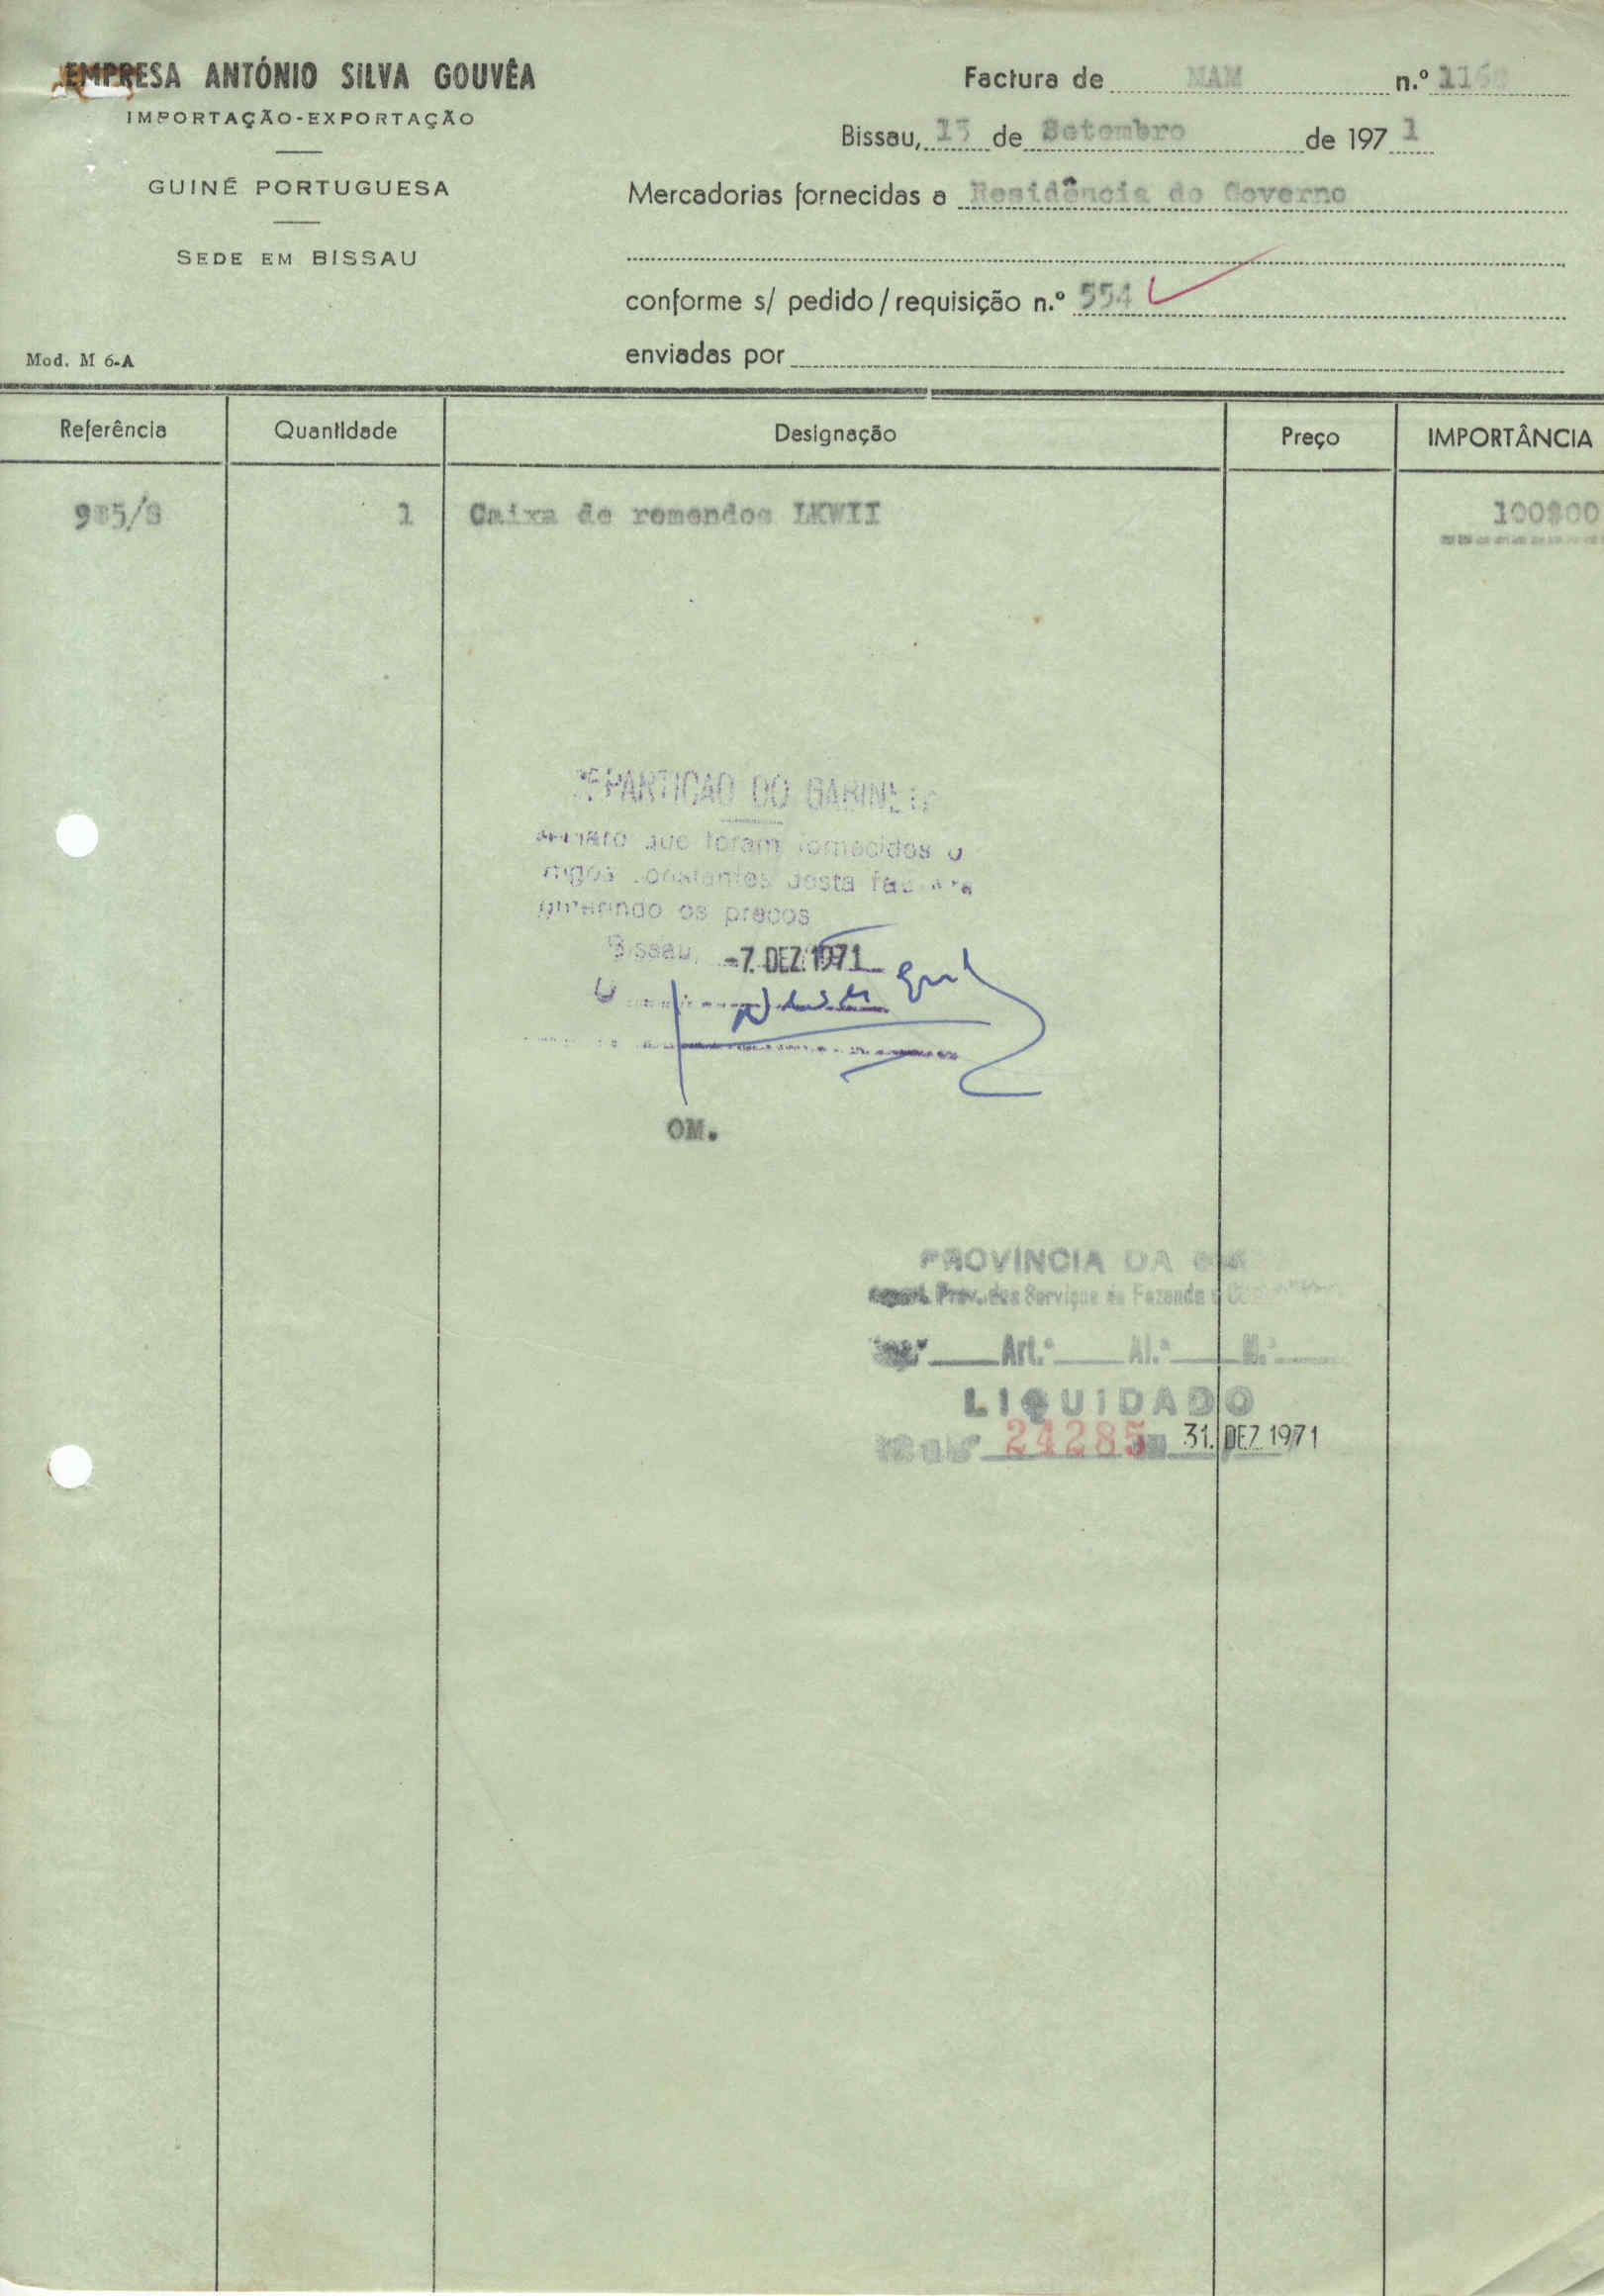 EMPRESA ANTÓNIO SILVA GOUVÊA
IMPORTAÇÃO-EXPORTAÇÃO
GUINÉ PORTUGUESA
SEDE EM BISSAU
Mod. M 6-A
Factura de MAM n.º
Bissau, de Setembro de 1971
Mercadorias fornecidas a Residência do Governo
conforme s/ pedido / requisição n.º 554
enviadas por
Referência Quantidade Designação Preço IMPORTÂNCIA
1 Caixa de remendos LKWII 100$00
PARTIÇÃO DO GABINETE
que foram fornecidos o
constantes desta
os preços
Bissau, -7. DEZ. 1971
O
OM.
PROVÍNCIA DA
Prov. dos Serviços de Fazenda e
Art.º Al.ª N.º
LIQUIDADO
24285 31. DEZ 1971